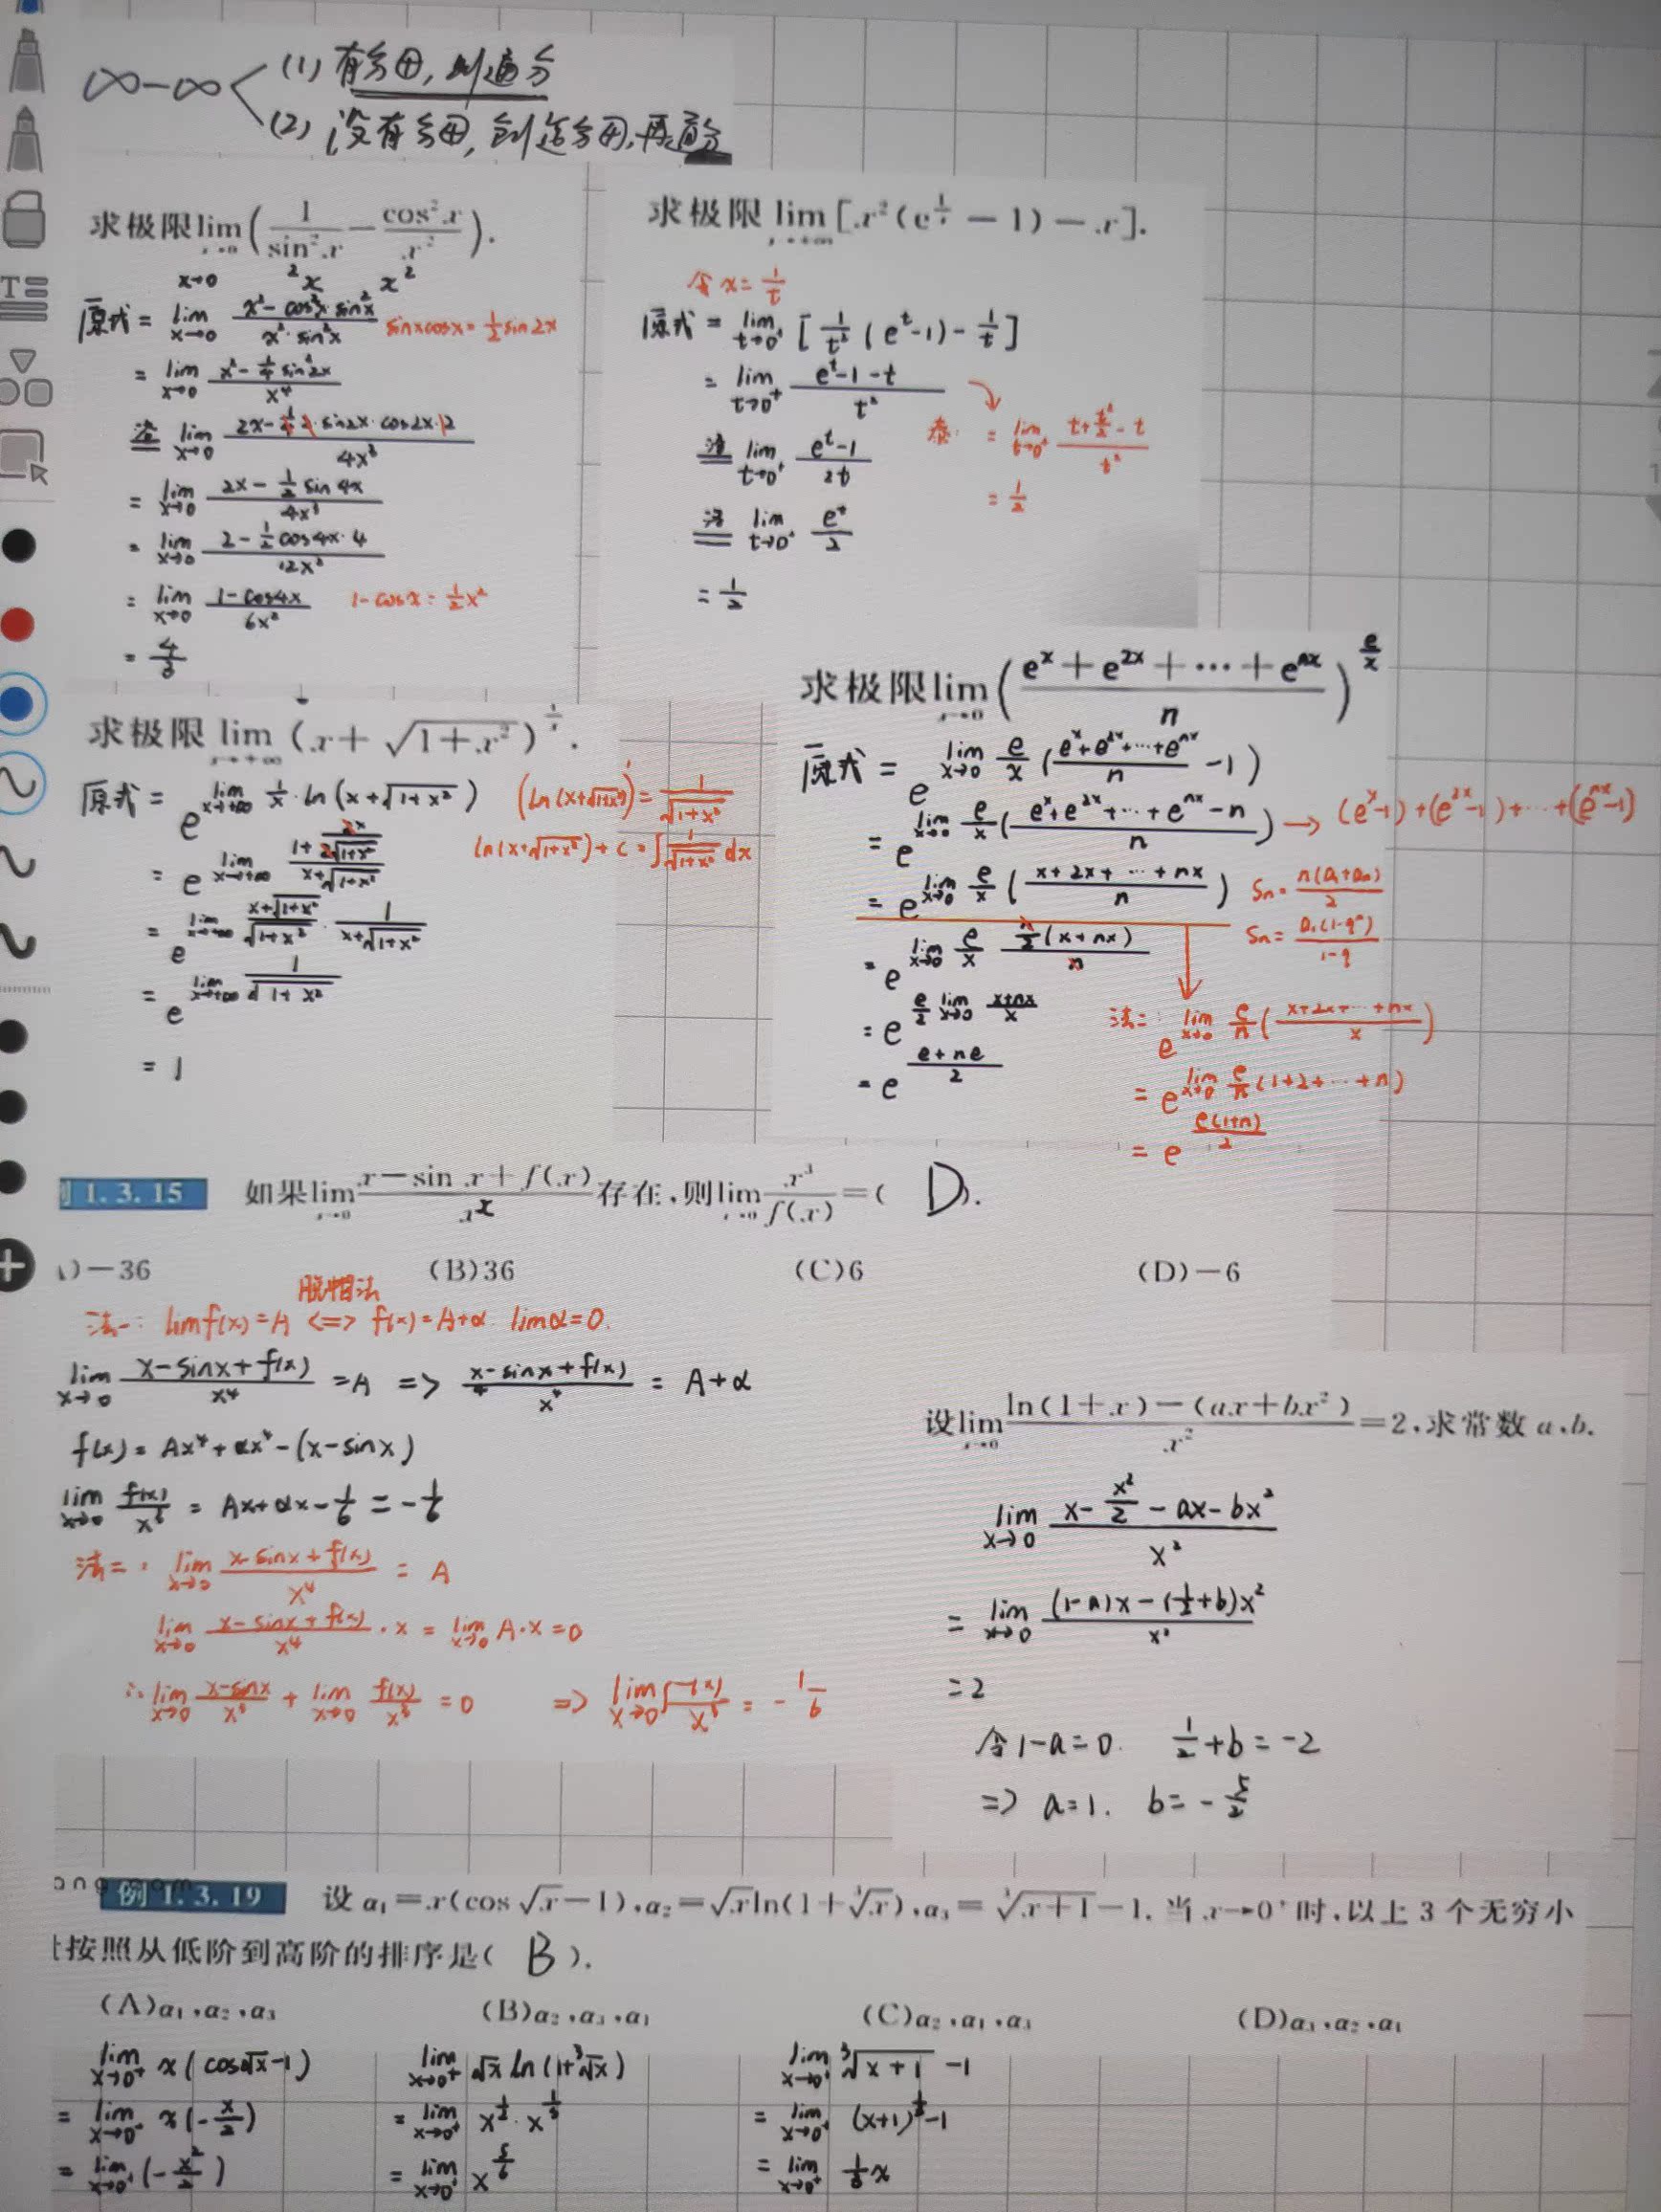 ∞-∞ (1) 有分母,则通分
(2) 没有分母,创造分母,再通分
求极限lim x→0 (1/sin²x - cos²x/x²).
x→0 ²x x²
原式 = lim x→0 (x²-cos²x·sin²x)/(x²·sin²x) sinxcosx=½sin2x
= lim x→0 (x²-¼sin²2x)/x⁴
洛 lim x→0 (2x-¼·2·sin2x·cos2x·2)/4x³
= lim x→0 (2x-½sin4x)/4x³
= lim x→0 (2-½cos4x·4)/12x²
= lim x→0 (1-cos4x)/6x² 1-cosx=½x²
= 4/3
求极限 lim x→+∞ [x²(e^(1/x)-1)-x].
令x=1/t
原式 = lim t→0⁺ [1/t²(e^t-1)-1/t]
= lim t→0⁺ (e^t-1-t)/t²
泰: = lim t→0⁺ (t+t²/2-t)/t²
= 1/2
洛 lim t→0⁺ (e^t-1)/2t
洛 lim t→0⁺ e^t/2
= 1/2
求极限 lim x→+∞ (x+√(1+x²))^(1/x).
原式 = e^(lim x→+∞ 1/x·ln(x+√(1+x²))) (ln(x+√(1+x²)))'=1/√(1+x²)
ln(x+√(1+x²))+C=∫1/√(1+x²) dx
= e^(lim x→+∞ (1+2x/(2√(1+x²)))/(x+√(1+x²)))
= e^(lim x→+∞ (x+√(1+x²))/√(1+x²)·1/(x+√(1+x²)))
= e^(lim x→+∞ 1/√(1+x²))
= 1
求极限lim x→0 ((e^x+e^(2x)+⋯+e^(nx))/n)^(e/x)
原式 = e^(lim x→0 e/x((e^x+e^(2x)+⋯+e^(nx))/n-1))
= e^(lim x→0 e/x((e^x+e^(2x)+⋯+e^(nx)-n)/n)) → (e^x-1)+(e^(2x)-1)+⋯+(e^(nx)-1)
= e^(lim x→0 e/x((x+2x+⋯+nx)/n)) Sn=n(a₁+an)/2
Sn=a₁(1-qⁿ)/(1-q)
= e^(lim x→0 e/x·(n/2(x+nx))/n)
= e^(e/2 lim x→0 (x+nx)/x)
= e^((e+ne)/2)
法二: e^(lim x→0 e/n((x+2x+⋯+nx)/x))
= e^(lim x→0 e/n(1+2+⋯+n))
= e^(e(1+n)/2)
1.3.15 如果lim x→0 (x-sin x+f(x))/x⁴存在,则lim x→0 x³/f(x)=( D ).
)-36 (B)36 (C)6 (D)-6
脱帽法
法一: limf(x)=A <=> f(x)=A+α. limα=0.
lim x→0 (x-sinx+f(x))/x⁴ =A => (x-sinx+f(x))/x⁴ = A+α
f(x)=Ax⁴+αx⁴-(x-sinx)
lim x→0 f(x)/x³ = Ax+αx-1/6=-1/6
法二: lim x→0 (x-sinx+f(x))/x⁴ = A
lim x→0 (x-sinx+f(x))/x⁴·x = lim x→0 A·x=0
∴lim x→0 (x-sinx)/x³ + lim x→0 f(x)/x³ =0 => lim x→0 f(x)/x³ = -1/6
设lim x→0 (ln(1+x)-(ax+bx²))/x²=2,求常数 a,b.
lim x→0 (x-x²/2-ax-bx²)/x²
= lim x→0 ((1-a)x-(½+b)x²)/x²
=2
令1-a=0. ½+b=-2
=> a=1. b=-5/2
例 1.3.19 设 α₁=x(cos √x-1),α₂=√x ln(1+³√x),α₃=³√(x+1)-1. 当 x→0⁺时,以上 3 个无穷小
按照从低阶到高阶的排序是( B ).
(A)α₁,α₂,α₃ (B)α₂,α₃,α₁ (C)α₂,α₁,α₃ (D)α₃,α₂,α₁
lim x→0⁺ x(cos√x-1) lim x→0⁺ √x ln(1+³√x) lim x→0⁺ ³√(x+1)-1
= lim x→0⁺ x(-x/2) = lim x→0⁺ x^(1/2)·x^(1/3) = lim x→0⁺ (x+1)^(1/3)-1
= lim x→0⁺ (-x²/2) = lim x→0⁺ x^(5/6) = lim x→0⁺ ⅓x